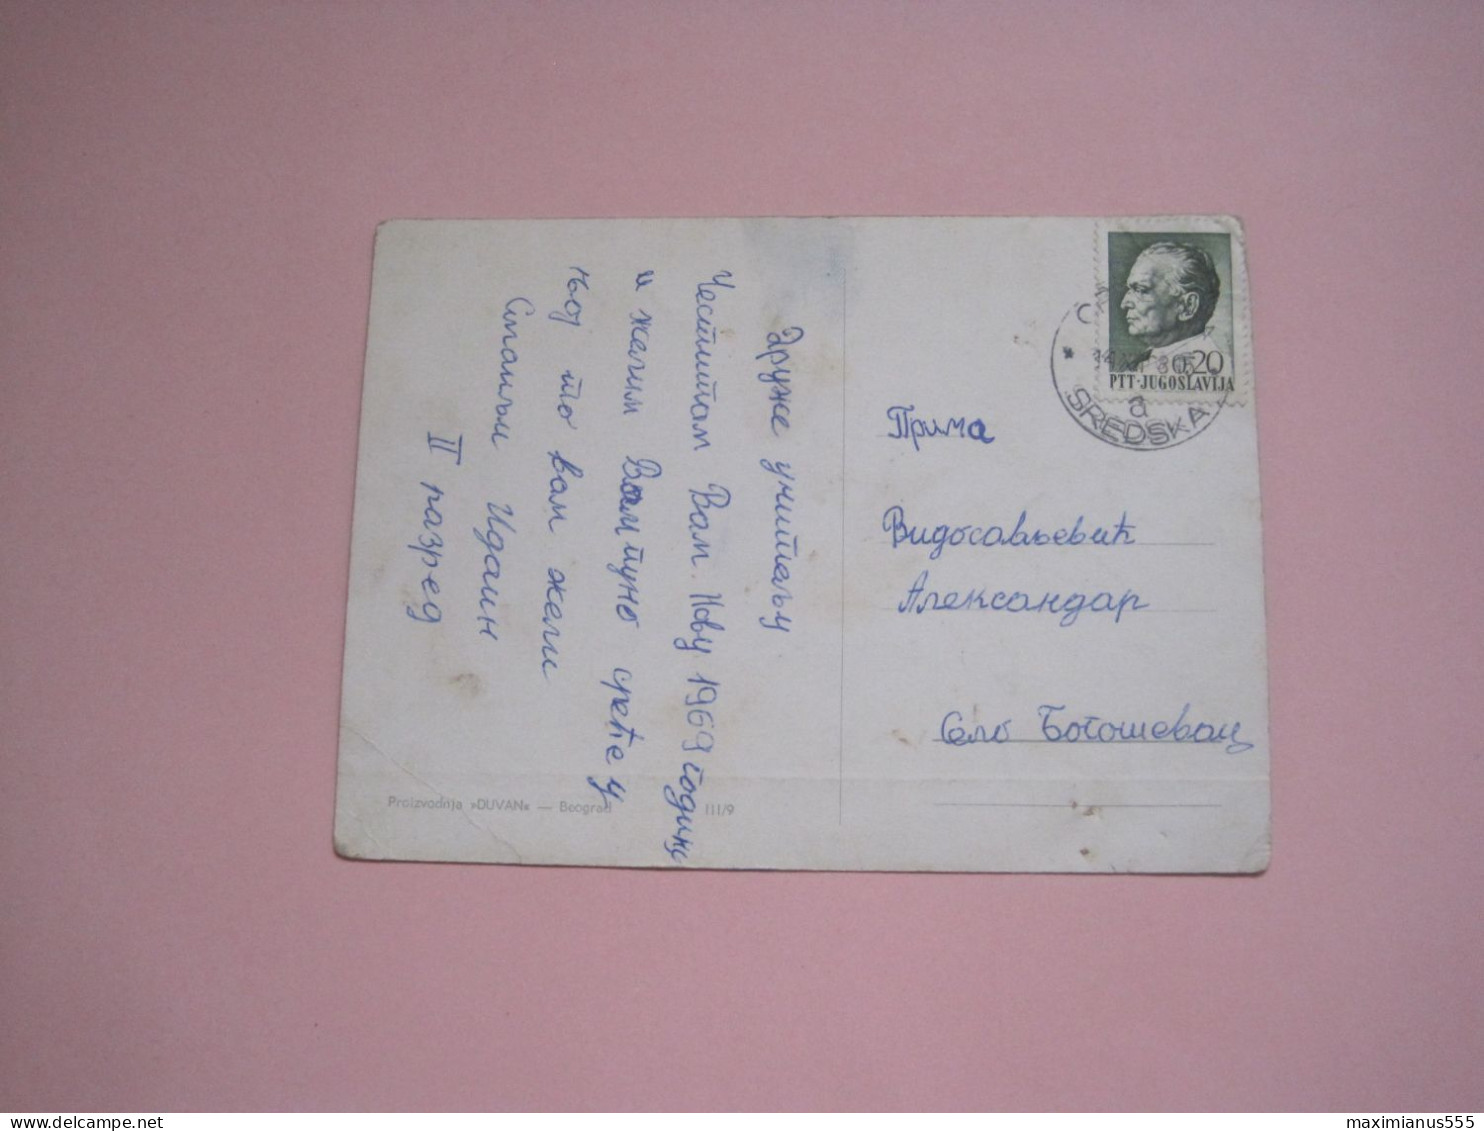 Друже учитељу
Честитам Вам Нову 1969 годину
и желим Вам пуно среће у
њој то вам жели
Идаин
II разред
Прима
Видосављевић
Александар
Село Богошевац
0.20
PTT-JUGOSLAVIJA
a
SREDSKA
Proizvodnja »DUVAN« — Beograd
III/9
maximianus555